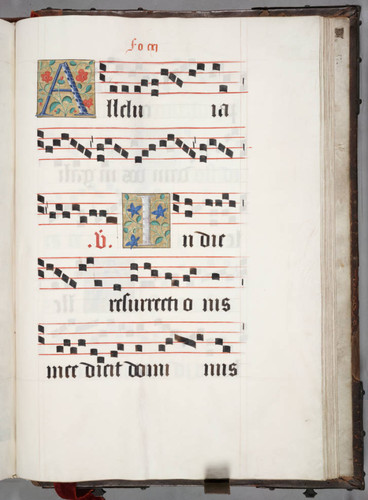 Allelu ia
.v. In die
resurrecti o nis
mee dicit domi nus